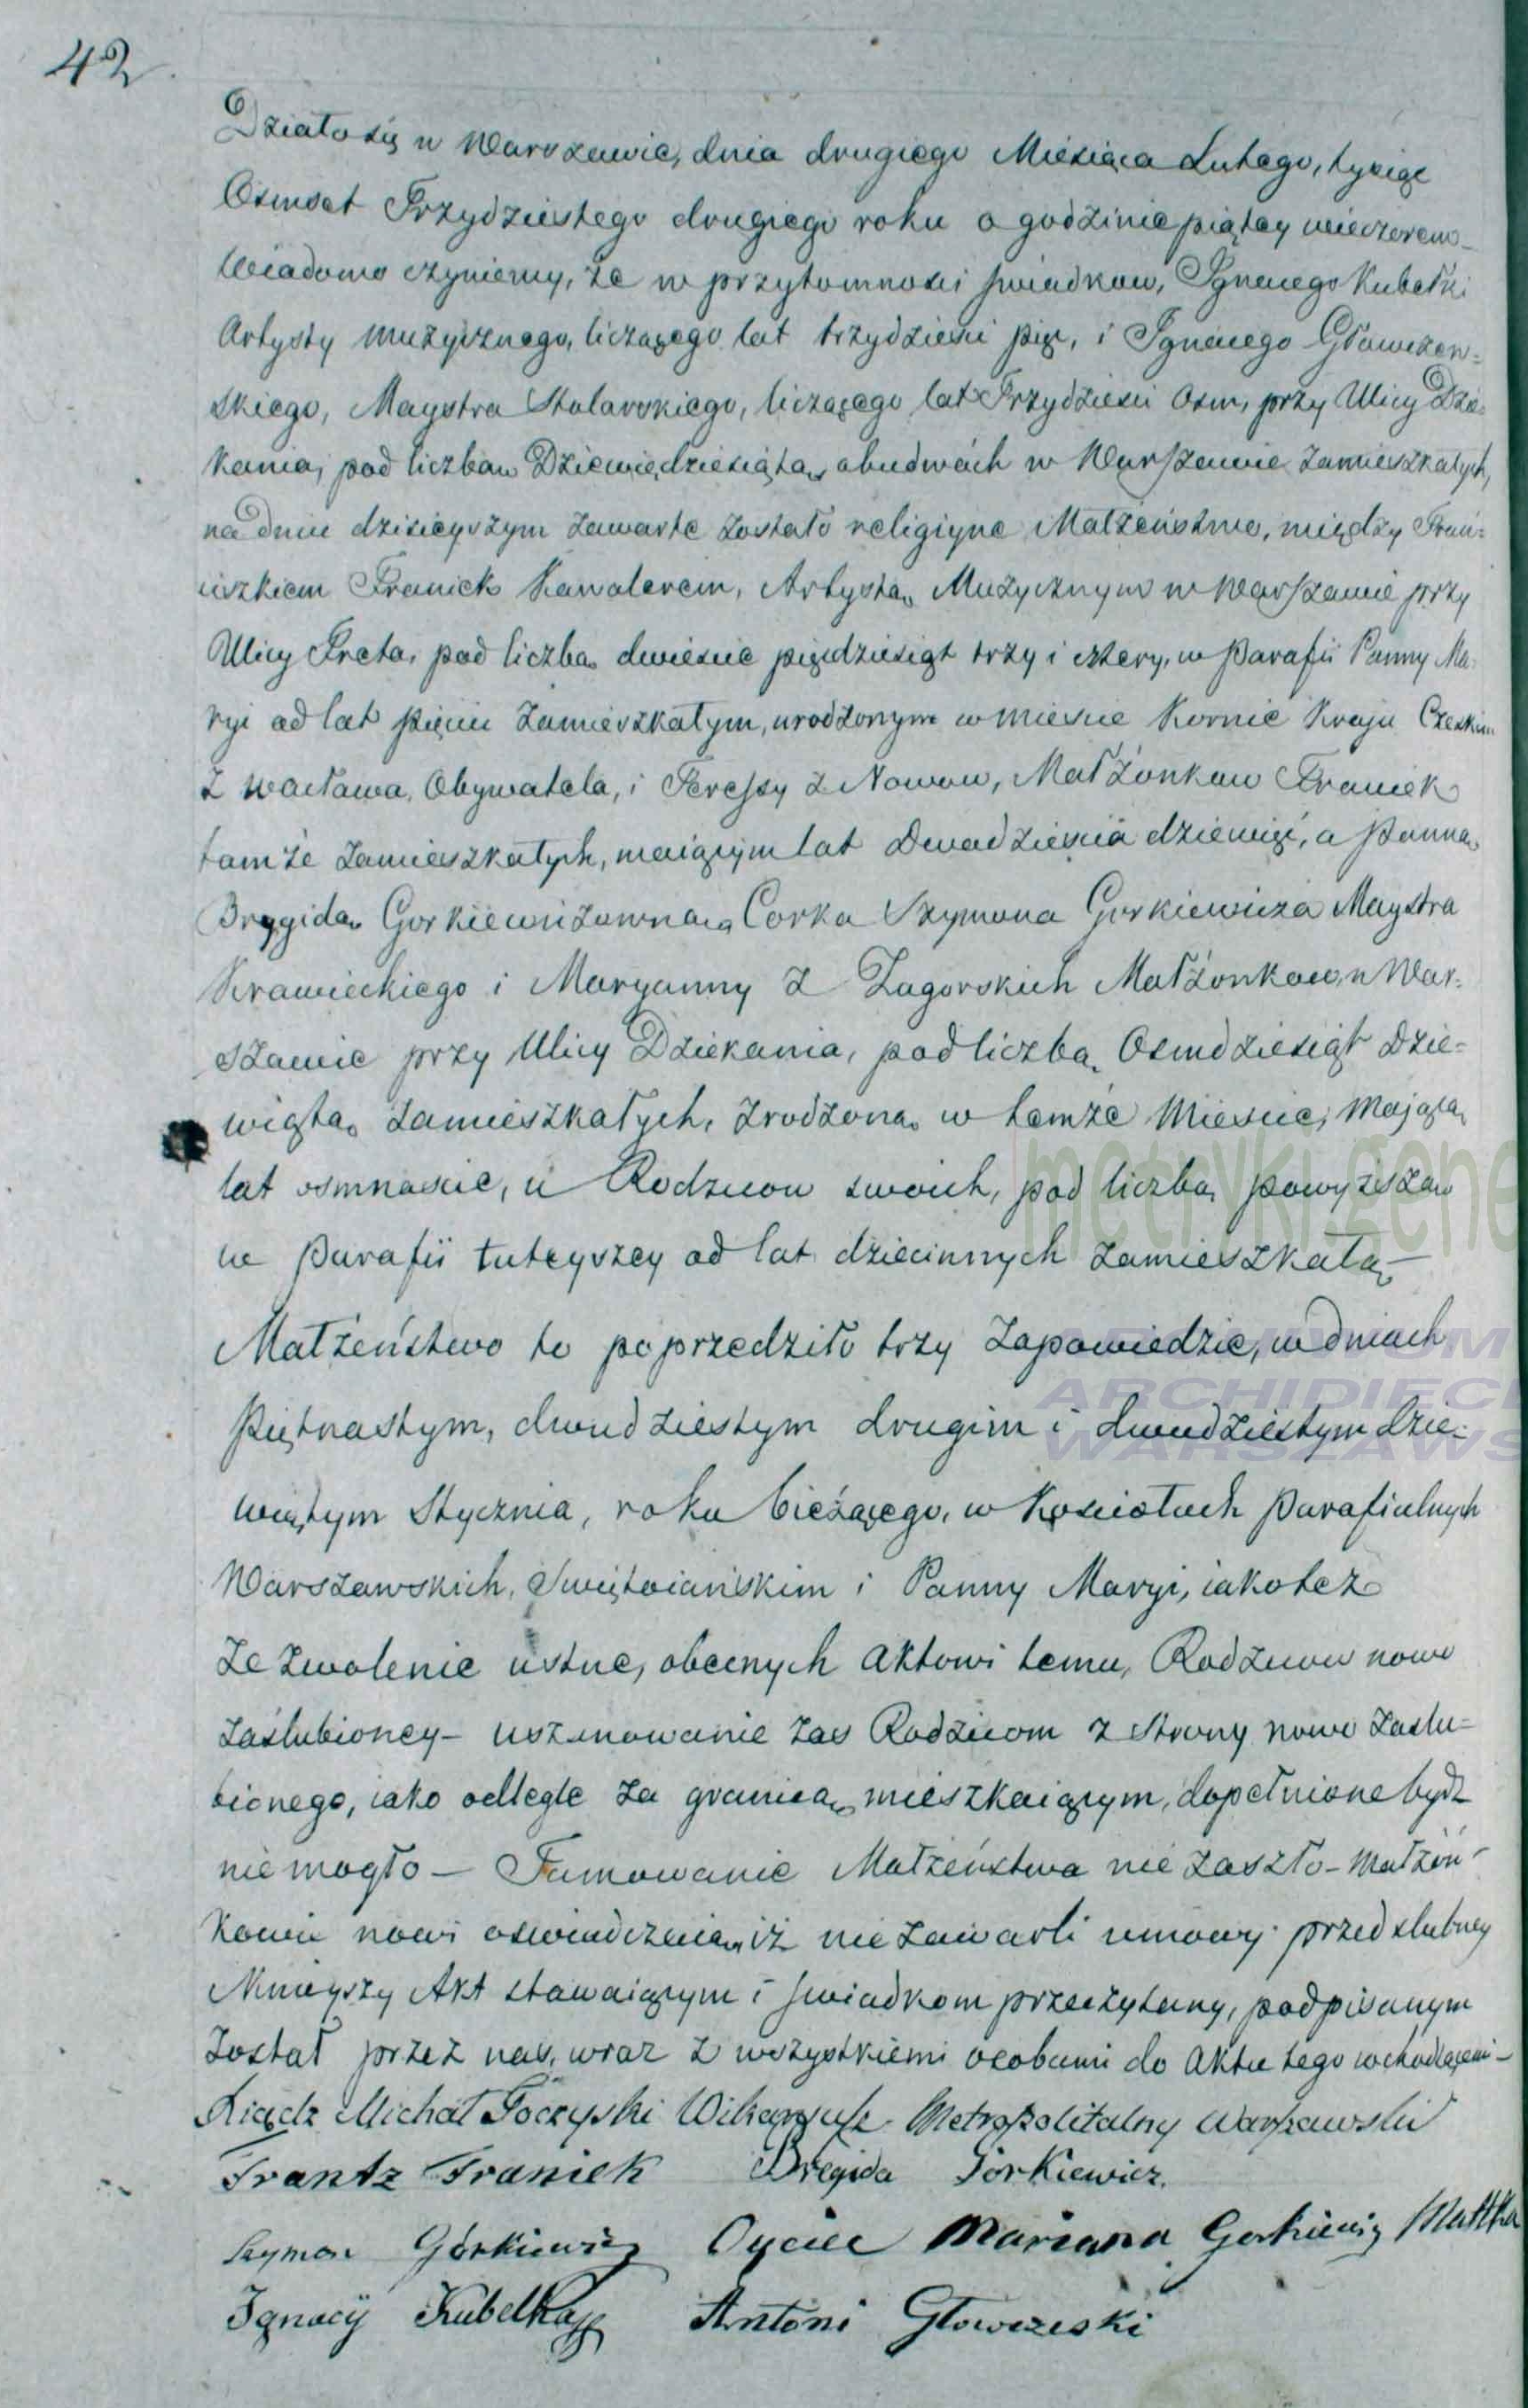 42.
Działo się w Warszawie, dnia drugiego Miesiąca Lutego, tysiąc
Osmset Trzydziestego drugiego roku o godzinie piątey wieczorem_
Wiadomo czyniemy, że w przytomności świadkow, Ignacego Kubełki
Artysty muzycznego, liczącego lat trzydzieści pięć, i Ignacego Głowczew=
skiego, Maystra Stolarskiego, liczącego lat Trzydzieści Osm, przy Ulicy Dzie=
kania, pod liczbą Dziewiędziesiątą, obudwóch w Warszawie zamieszkałych,
na dniu dzisieyszym zawarte zostało religiyne Małżeństwo, między Fran=
ciszkiem Franiek Kawalerem, Artystą Muzycznym w Warszawie przy
Ulicy Freta, pod liczbą dwieście pięćdziesiąt trzy i cztery, w Parafii Panny Ma=
ryi od lat pięciu zamieszkałym, urodzonym w mieście Kornic Kraju Czeskim
z Wacława Obywatela, i Teressy z Nowow, Małżonkow Franiek
tamże zamieszkałych, maiącym lat Dwadzieścia dziewięć, a Panną
Brygidą Gorkiewiczowną Corką Szymona Gorkiewicza Maystra
Krawieckiego i Maryanny z Zagorskich Małżonkow, w War=
szawie przy Ulicy Dziekania, pod liczbą Osmdziesiąt Dzie=
wiątą zamieszkałych, zrodzoną w temże Mieście, Mającą
lat osmnaście, u Rodzicow swoich, pod liczbą powyższą
w Parafii tuteyszey od lat dziecinnych zamieszkałą_
Małżeństwo to poprzedziło trzy Zapowiedzie, w dniach
Piętnastym, dwudziestym drugim i dwudziestym dzie=
wiątym Stycznia, roku bieżącego, w Kościołach Parafialnych
Warszawskich, Świętoiańskim i Panny Maryi, iakoteż
zezwolenie ustne, obecnych Aktowi temu, Rodzicow nowo
zaślubioney – uszanowanie zaś Rodzicom z strony nowo zaślu=
bionego, iako odległe za granicą mieszkaiącym, dopełnione bydź
nie mogło – Tamowanie Małżeństwa nie zaszło – Małżon=
kowie nowi oświadczaią, iż nie zawarli umowy przedślubney
Ninieyszy Akt stawaiącym i świadkom przeczytany, podpisanym
został przez nas, wraz z wszystkiemi osobami do Aktu tego wchodzącemi –
Xiądz Michał Toczyski Wikaryusz Metropolitalny Warszawski
Frantz Franiek Bregida Gorkiewicz.
Szymon Górkiewicz Oyciec Mariana Gorkiewicz Mattka
Ignacÿ Kubelka Antoni Głowczeski
metryki.gene
ARCHIDIEC
WARSZAWS